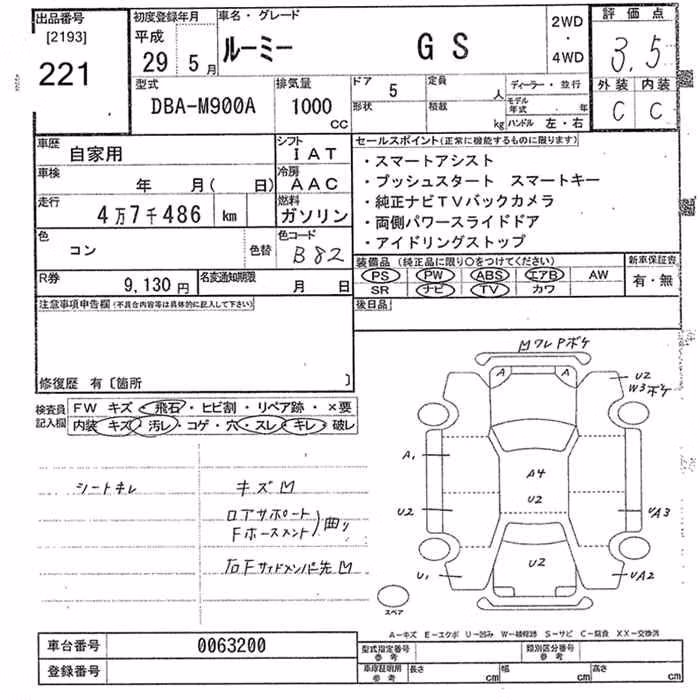 出品番号
[2193]
221
初度登録年月
平成
29 5月
車名・グレード
ルーミー GS
2WD
・
4WD
評価点
3.5
外装 内装
C C
型式
DBA-M900A
排気量
1000
CC
ドア 5
形状
定員 人
積載 kg
ディーラー・並行
モデル年式 年
ハンドル 左・右
車歴
自家用
シフト
IAT
車検
年 月( 日)
冷房
AAC
走行
4万7千486 km
燃料
ガソリン
色
コン
色替
色コード
B82
R券
9,130円
名変通知期限
月 日
セールスポイント(正常に機能するものに限ります)
・スマートアシスト
・プッシュスタート スマートキー
・純正ナビTVバックカメラ
・両側パワースライドドア
・アイドリングストップ
装備品 (純正品に限り○をつけてください)
PS PW ABS エアB AW
SR ナビ TV カワ
新車保証書
有・無
後日品
注意事項申告欄(不具合内容等は具体的に記入して下さい)
修復歴 有〔箇所 〕
検査員
記入欄
FW キズ・飛石・ヒビ割・リペア跡・×要
内装 キズ・汚レ・コゲ・穴・スレ・キレ・破レ
シートキレ
キズM
ロアサポート
Fホースメント
)曲り
右Fサイドメンバ先M
MワレPボケ
A A
U2
W3ボケ
A1
A4
U2
U2
UA3
U2
U1
UA2
スペア
A-キズ E-エクボ U-凹み W-補修跡 S-サビ C-腐食 XX-交換済
車台番号 0063200
登録番号
型式指定番号
参考
類別区分番号
参考
車庫証明用
参考
長さ cm
幅 cm
高さ cm